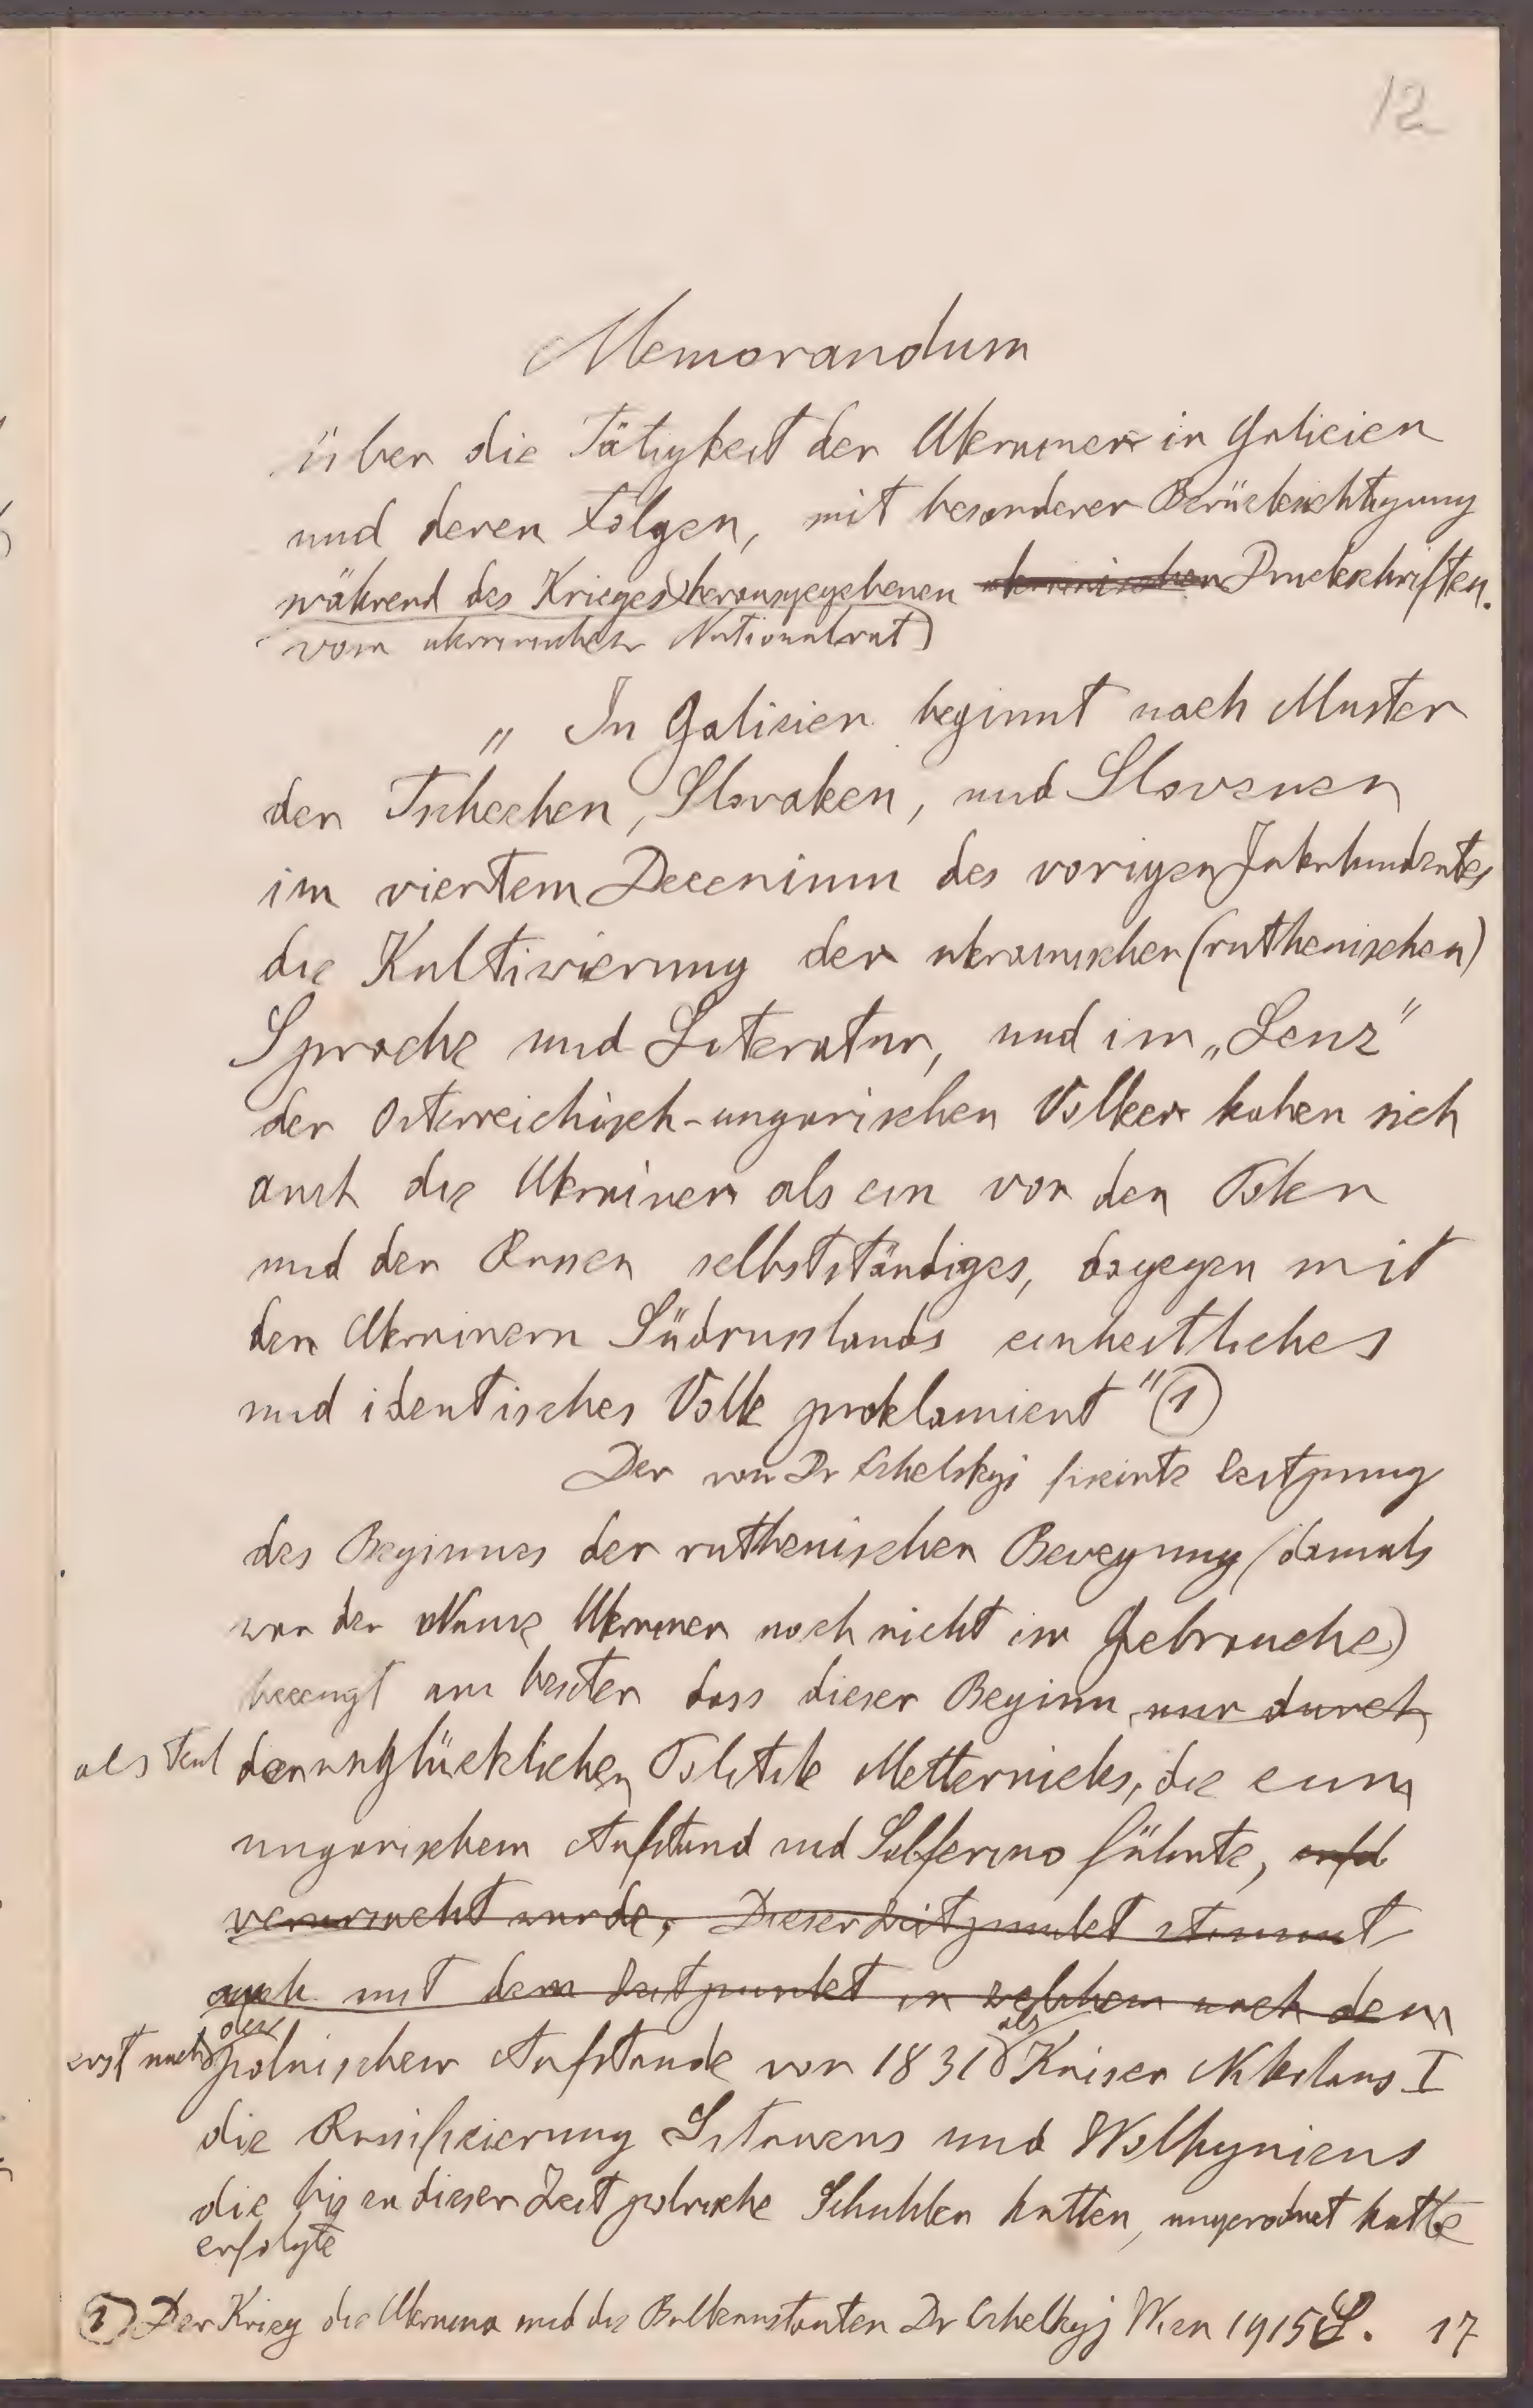 12
Memorandum
über die Tätigkeit der Ukrainer in Galicien
und deren Folgen, mit besonderer Berücksichtigung
während des Krieges herausgegebenen ukrainischen Druckschriften.
vom ukrainischen Nationalrat)
„ In Galizien beginnt nach Muster
der Tschechen, Slovaken, und Slovenen
im viertem Decenium des vorigen Jahrhundertes
die Kultivierung der ukrainischen (ruthenischen)
Sprache und Literatur, und im „Lenz"
der österreichisch-ungarischen Völker haben sich
auch die Ukrainer als ein von den Polen
und den Russen selbstständiges, dagegen mit
den Ukrainern Südrusslands einheitliches
und identisches Volk proklamiert" (1)
Der von Dr
des Beginnes der ruthenischen Bewegung (damals
war der Name Ukrainer noch nicht im Gebrauche)
bezeugt am besten dass dieser Beginn nur durch
als Teil der unglücklichen Politik Metternichs, die zum
ungarischem Aufstand und Solferino führte,
verursacht wurde. Dieser Zeitpunkt stimmt
auch mit dem Zeitpunkt in welchem nach dem
erst nach dem polnischen Aufstande von 1831 als Kaiser Nikolaus I
die Russifizierung Litauens und Wolhyniens
die bis zu dieser Zeit polnische Schuhlen hatten, angeordnet hatte
erfolgte
(1) Der Krieg die Ukraina und die Balkanstaaten Dr Wien 1915 S. 17